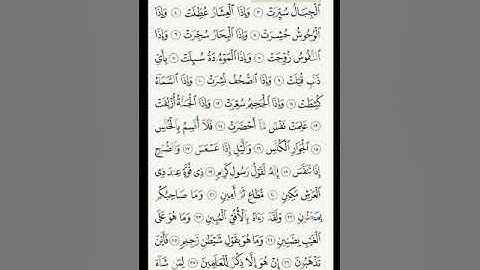 ٱلْجِبَالُ سُيِّرَتْ ٣ وَإِذَا ٱلْعِشَارُ عُطِّلَتْ ٤ وَإِذَا
ٱلْوُحُوشُ حُشِرَتْ ٥ وَإِذَا ٱلْبِحَارُ سُجِّرَتْ ٦ وَإِذَا
ٱلنُّفُوسُ زُوِّجَتْ ٧ وَإِذَا ٱلْمَوْءُۥدَةُ سُئِلَتْ ٨ بِأَىِّ
ذَنۢبٍ قُتِلَتْ ٩ وَإِذَا ٱلصُّحُفُ نُشِرَتْ ١٠ وَإِذَا ٱلسَّمَآءُ
كُشِطَتْ ١١ وَإِذَا ٱلْجَحِيمُ سُعِّرَتْ ١٢ وَإِذَا ٱلْجَنَّةُ أُزْلِفَتْ
١٣ عَلِمَتْ نَفْسٌ مَّآ أَحْضَرَتْ ١٤ فَلَآ أُقْسِمُ بِٱلْخُنَّسِ
١٥ ٱلْجَوَارِ ٱلْكُنَّسِ ١٦ وَٱلَّيْلِ إِذَا عَسْعَسَ ١٧ وَٱلصُّبْحِ
إِذَا تَنَفَّسَ ١٨ إِنَّهُۥ لَقَوْلُ رَسُولٍ كَرِيمٍ ١٩ ذِى قُوَّةٍ عِندَ ذِى
ٱلْعَرْشِ مَكِينٍ ٢٠ مُّطَاعٍ ثَمَّ أَمِينٍ ٢١ وَمَا صَاحِبُكُم
بِمَجْنُونٍ ٢٢ وَلَقَدْ رَءَاهُ بِٱلْأُفُقِ ٱلْمُبِينِ ٢٣ وَمَا هُوَ عَلَى
ٱلْغَيْبِ بِضَنِينٍ ٢٤ وَمَا هُوَ بِقَوْلِ شَيْطَٰنٍ رَّجِيمٍ ٢٥ فَأَيْنَ
تَذْهَبُونَ ٢٦ إِنْ هُوَ إِلَّا ذِكْرٌ لِّلْعَٰلَمِينَ ٢٧ لِمَن شَآءَ